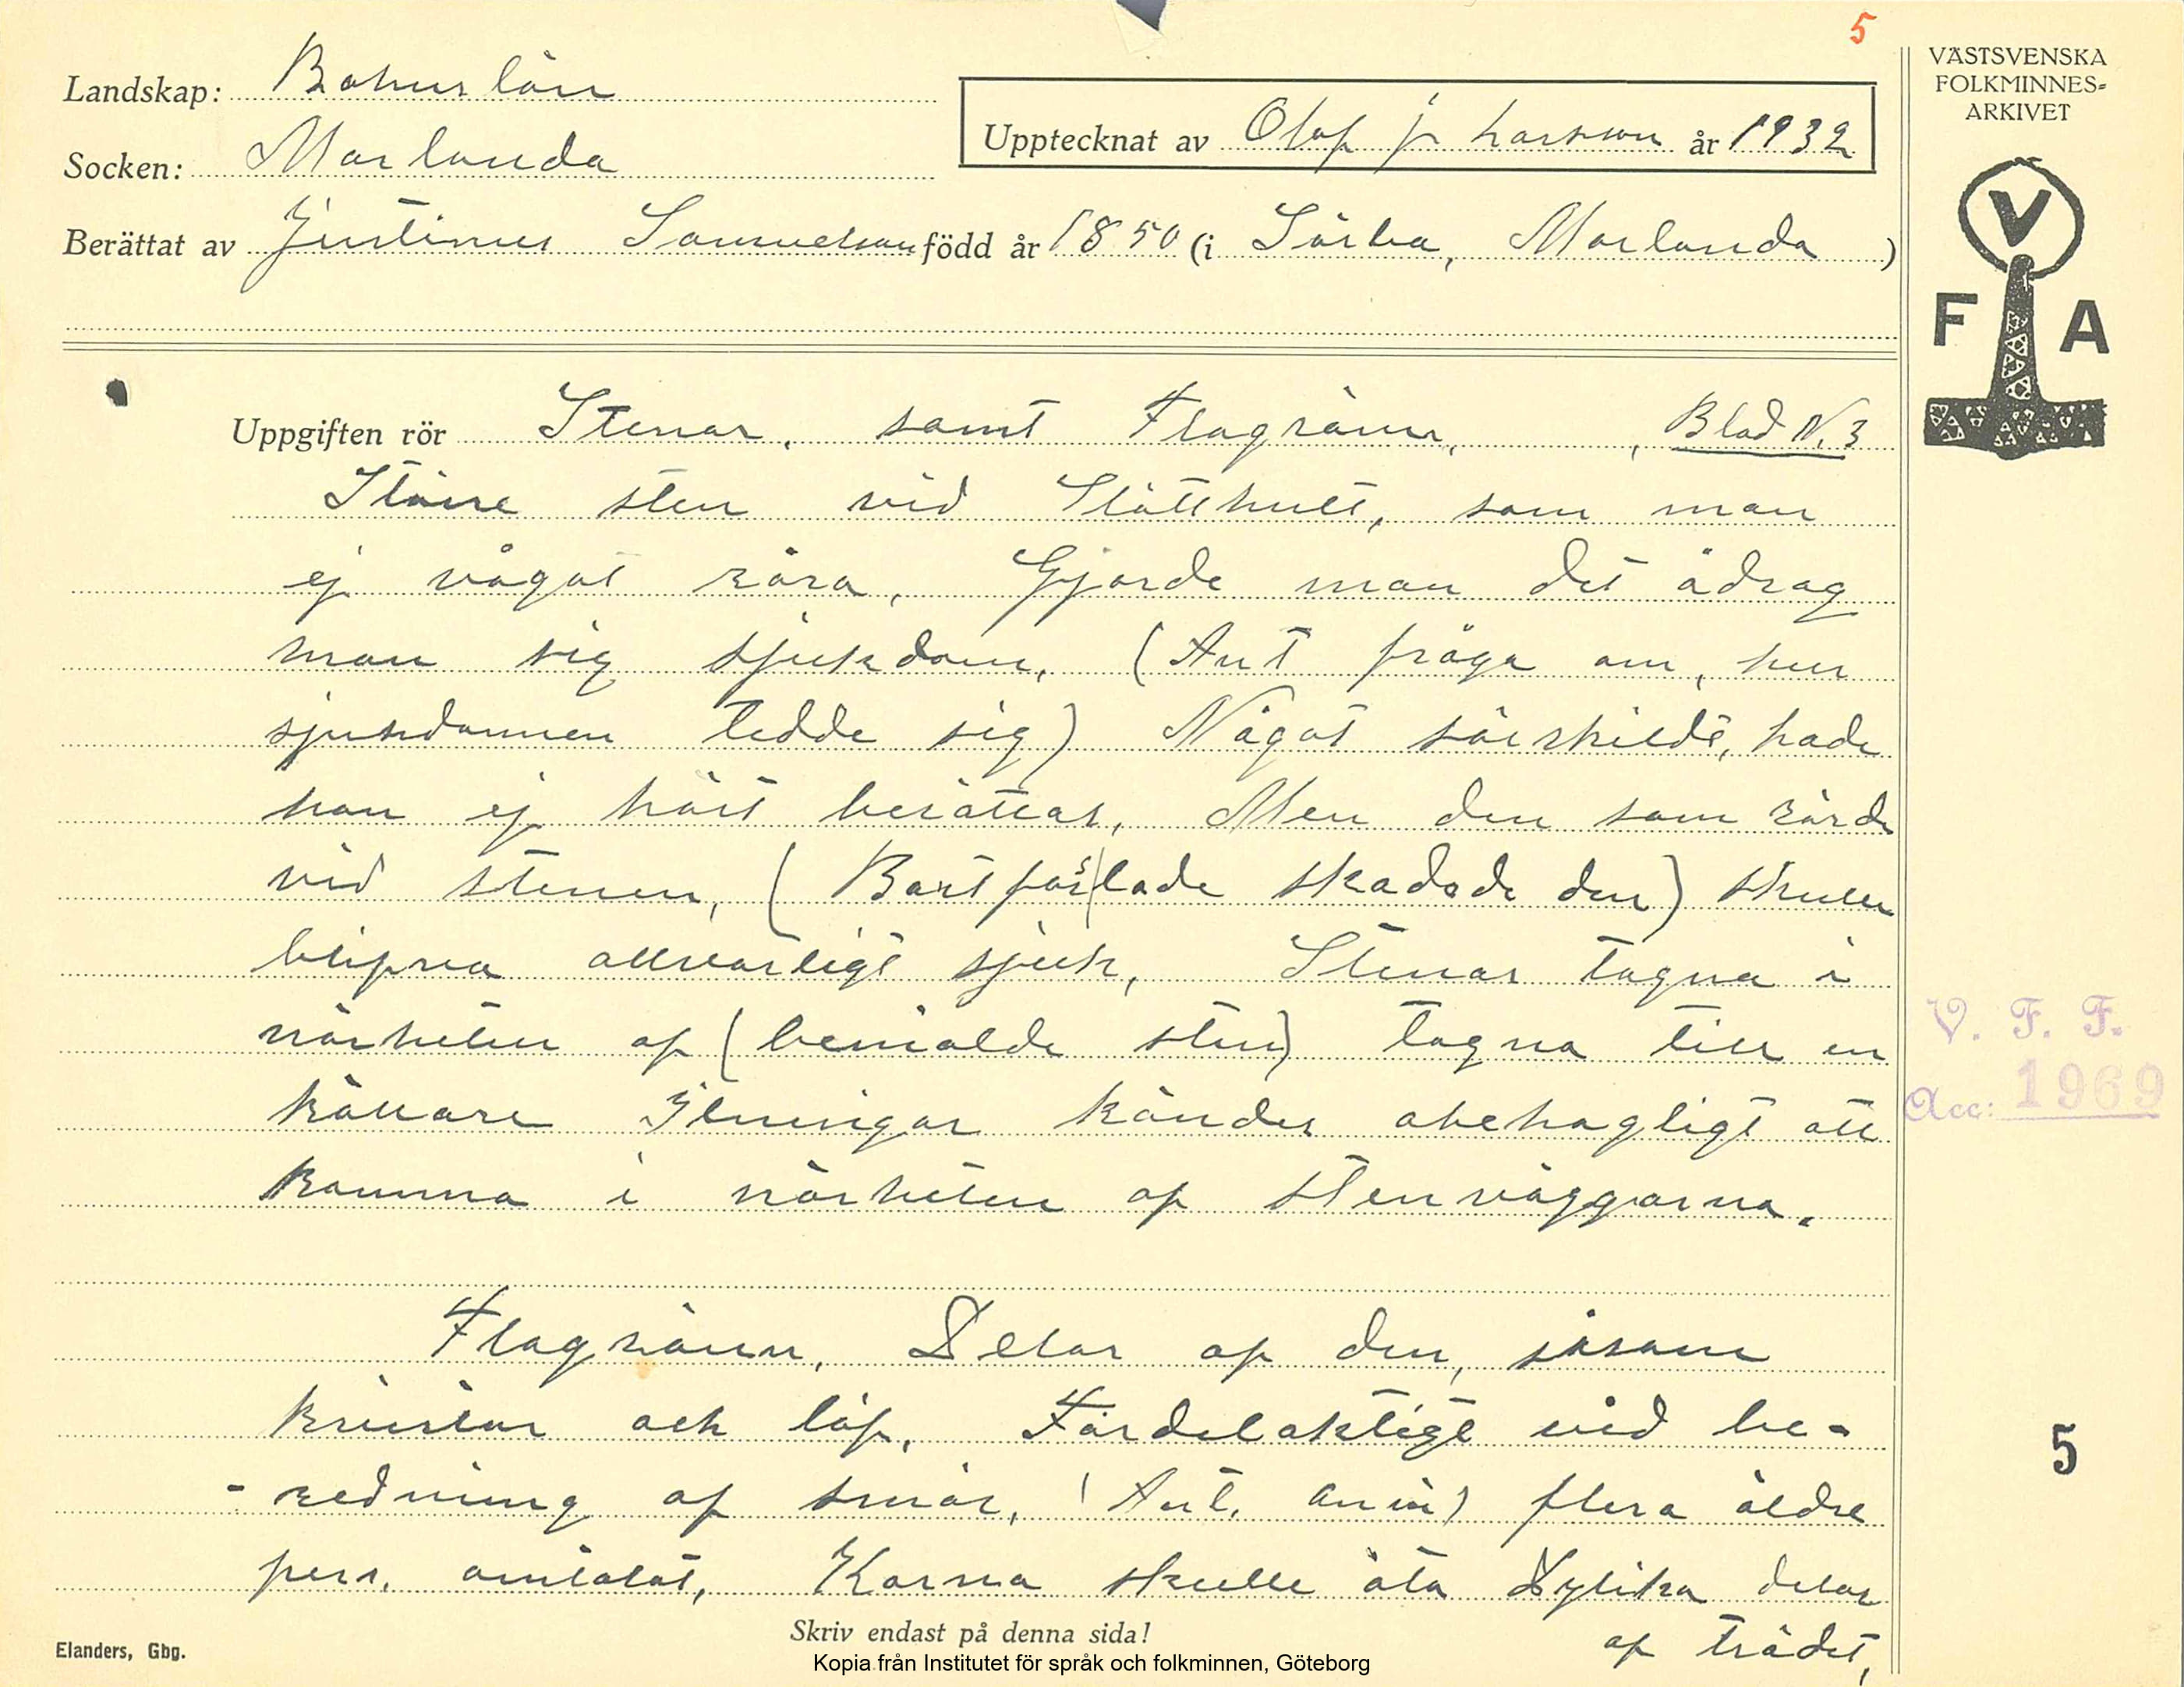 5
VÄSTSVENSKA
FOLKMINNES-
ARKIVET
Landskap: Bohuslän
Upptecknat av Olof jr Larsson år 1932
Socken: Morlanda
Berättat av Justinus Samuelson född år 1850 (i Sörbo, Morlanda)
V
F A
Uppgiften rör Stenar, samt Flagrönn, Blad N. 3
Större sten vid Slätthult, som man
ej vågat röra, Gjorde man det ådrag
man sig sjukdom. (Ant fråga om, hur
sjukdomen tedde sig) Något särskildt, hade
han ej hört berättas. Men den som rörde
vid stenen, (Bortforslade skadade den) skulle
blifva allvarligt sjuk, Stenar tagna i
närheten af (bemälde sten) tagna till en
källare Ilningar kändes obehagligt att
komma i närheten af stenväggarna.
Flagrönn. Delar af den, såsom
kvistar och löf, Fördelaktigt vid be-
-redning af smör, (Ant. anm) flera äldre
pers. omtalat, Korna skulle äta dylika delar
af trädet,
V. F. F.
Acc: 1969
5
Skriv endast på denna sida!
Elanders, Gbg.
Kopia från Institutet för språk och folkminnen, Göteborg